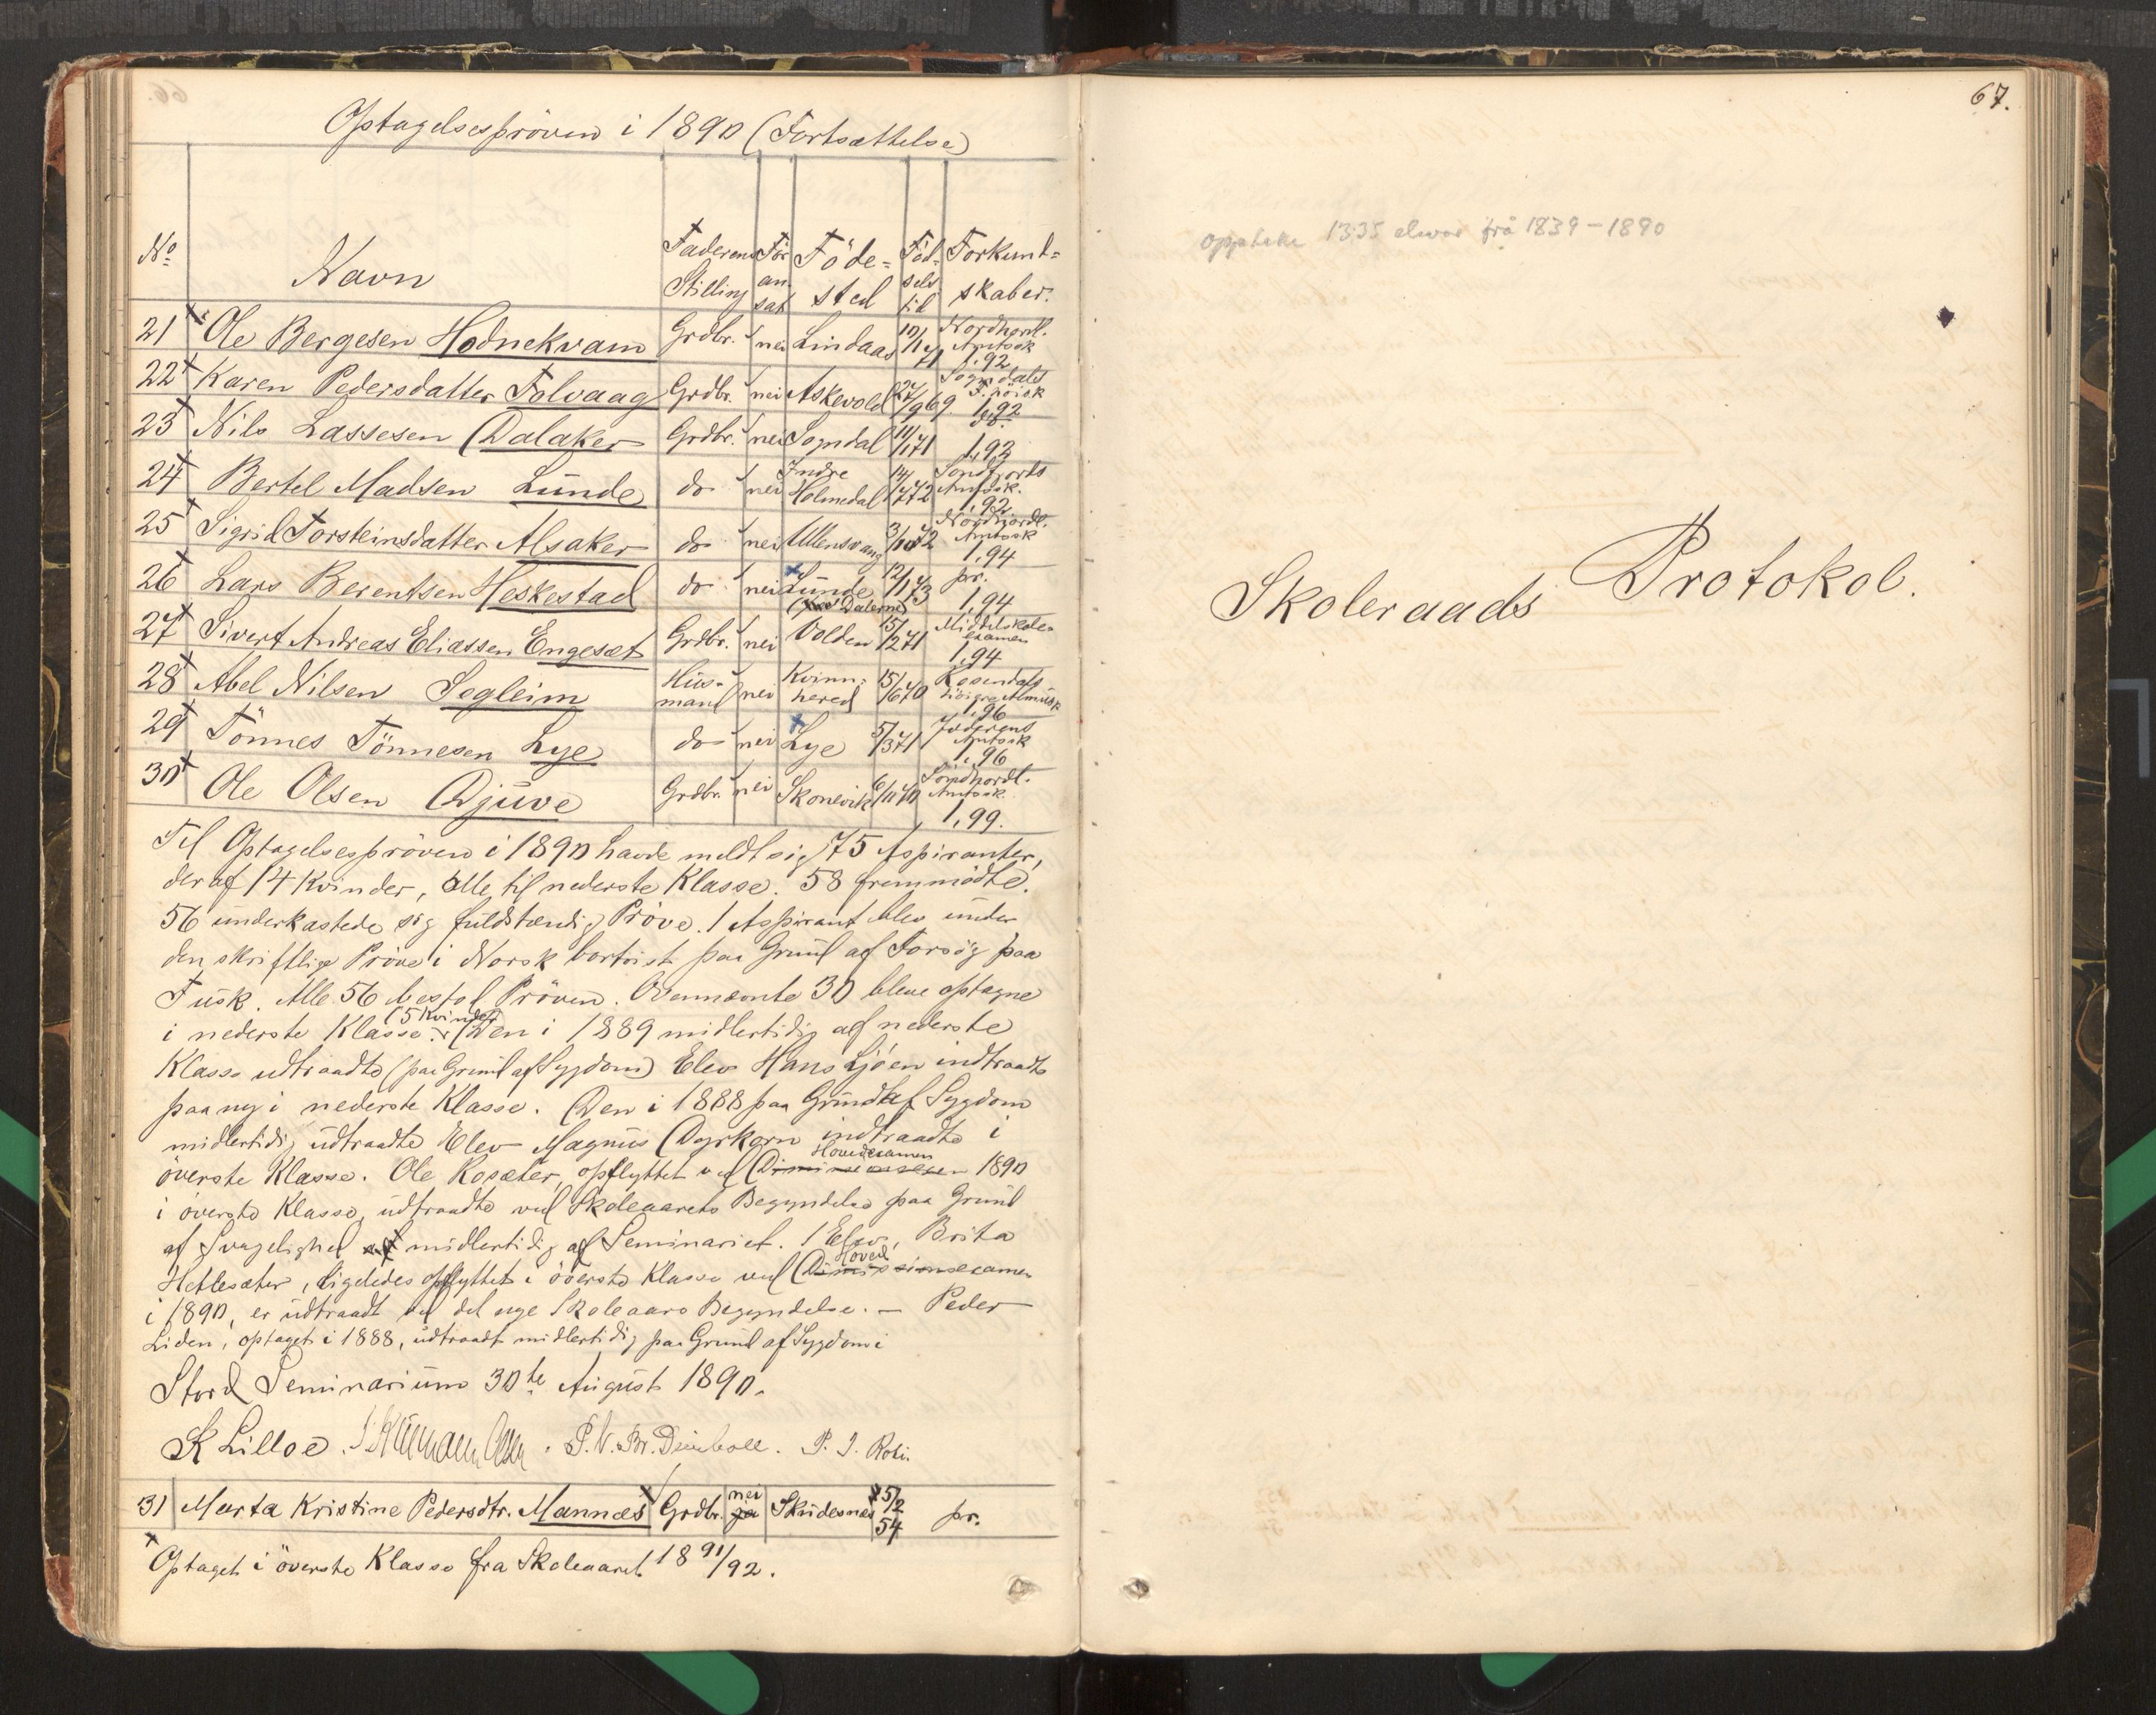 Optagelsesprøven i 1890 (Fortsættelse)
No Navn Faderens Stilling Føde-sted Fød-sels tid Forkund-skaber.
21 Ole Bergesen Hodnekvam Grdbr. nei Lindaas 10/11 71 Nordhordl. Amtssk 1,92
22 Karen Pedersdatter Folvaag Grdbr. nei Askevold 27/9 69 Sogndals 1,92
23 Nils Lassesen Dalaker Grdbr. nei Sogndal 11/1 71 do. 1,93
24 Bertel Madsen Lunde do nei Indre Holmedal 14/1 72 Søndfjords Amtssk. 1,92.
25 Sigrid Torsteinsdatter Alsaker do nei Ullensvang 3/10 72 Amtssk 1,94
26 Lars Berentsen Heskestad do nei Lunde (Dalerne) 12/1 73 pr. 1,94
27 Sivert Andreas Eliassen Engeset Grdbr. nei Volden 15/2 71 Middelskole-examen 1,94
28 Abel Nilsen Segleim Hus-mand nei Kvinn-hered 15/6 70 Rosendals høiere Almusk 1,96
29 Tönnes Tönnesen Lye do nei Lye 5/3 71 Jæderens Amtssk 1,96
30 Ole Olsen Djuve Grdbr. nei Skonevik 6/11 70 Söndhordl. Amtssk. 1,99.
Til Optagelsesprøven i 1890 havde meldt sig 75 Aspiranter,
deraf 14 Kvinder, alle til nederste Klasse. 58 fremmødte.
56 underkastede sig fuldstændig Prøve. 1 Aspirant blev under
den skriftlige Prøve i Norsk bortvist paa Grund af Forsøg paa
Fusk. Alle 56 bestod Prøven. Ovennævnte 30 bleve optagne
i nederste Klasse (5 Kvinder). Den i 1889 midlertidig af nederste
Klasse udtraadte (paa Grund af Sygdom) Elev Hans Ljöen indtraadte
paany i nederste Klasse. Den i 1888 paa Grund af Sygdom
midlertidig udtraadte Elev Magnus Dyrkorn indtraadte i
øverste Klasse. Ole Rosæter, opflyttet ved Hovedexamen 1890
i øverste Klasse, udtraadte ved Skoleaarets Begyndelse paa Grund
af Svagelighed midlertidig af Seminariet. 1 Elev, Brita
Hetlesæter, ligeledes opflyttet i øverste Klasse ved Hovedexamen
i 1890, er udtraadt ved det nye Skoleaars Begyndelse. — Peder
Liden, optaget i 1888, udtraadt midlertidig paa Grund af Sygdom i
Stord Seminarium 30te August 1890.
K Lilloe. P. I. Røti.
31 Marta Kristine Pedersdtr. Mannes Grdbr. nei Skudesnes 25/2 54 pr.
x Optaget i øverste Klasse fra Skoleaaret 1891/92.
67.
Oppteke 1335 elevar frå 1839-1890
Skoleraads Protokol.